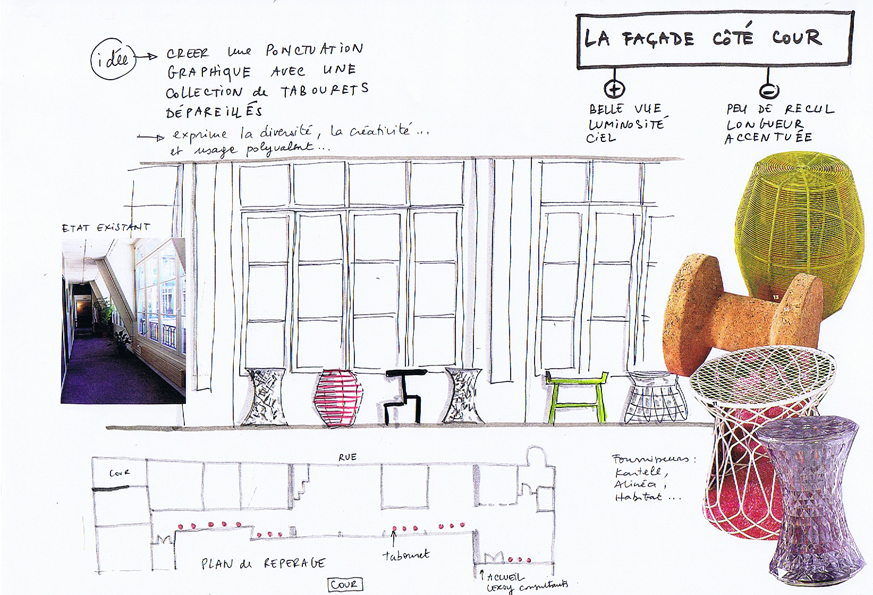 LA FAÇADE CÔTÉ COUR
idée
CREER une PONCTUATION
GRAPHIQUE AVEC UNE
COLLECTION de TABOURETS
DÉPAREILLÉS
exprime la diversité, la créativité...
et usage polyvalent...
+
BELLE VUE
LUMINOSITÉ
CIEL
-
PEU DE RECUL
LONGUEUR
ACCENTUÉE
ETAT EXISTANT
13
RUE
COUR
Fournisseurs :
Kartell,
Alinéa,
Habitat...
tabouret
PLAN de REPERAGE
COUR
ACCUEIL
consultants